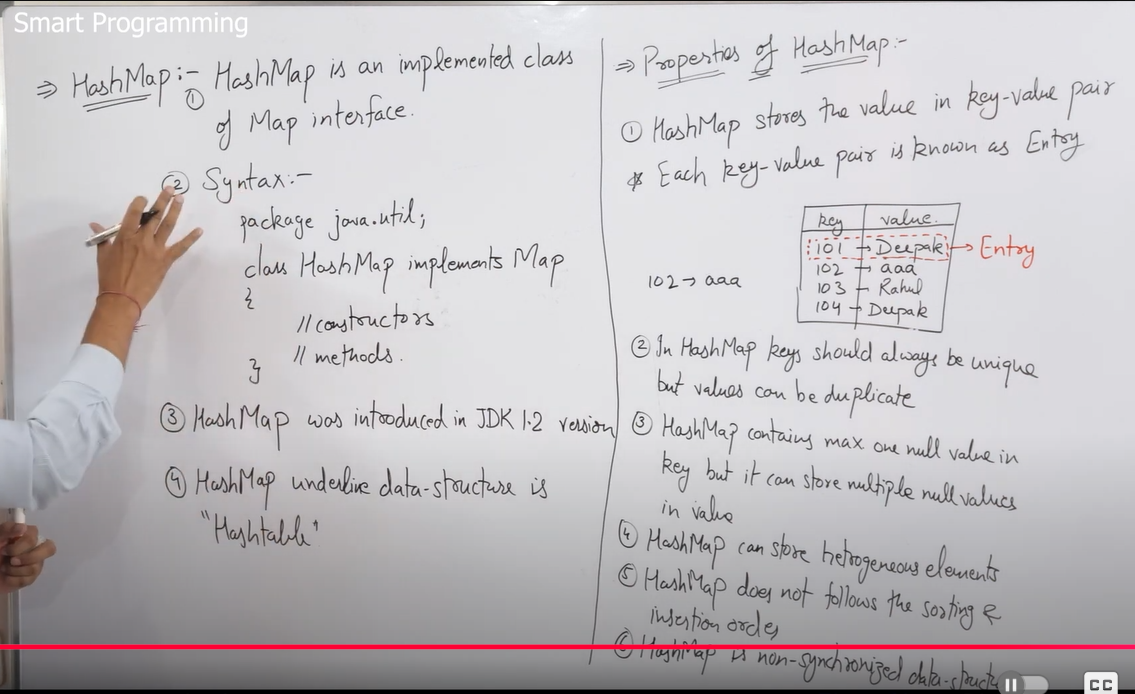 Smart Programming
⇒ HashMap:- ① HashMap is an implemented class
of Map interface.
② Syntax:-
package java.util;
class HashMap implements Map
{
// constructors
// methods.
}
③ HashMap was introduced in JDK 1.2 version
④ HashMap underline data-structure is
"Hashtable"
⇒ Properties of HashMap:-
① HashMap stores the value in key-value pair
* Each key-value pair is known as Entry
key value
101 → Deepak → Entry
102 → aaa
103 → Rahul
104 → Deepak
102 → aaa
② In HashMap keys should always be unique
but values can be duplicate
③ HashMap contains max one null value in
key but it can store multiple null values
in value
④ HashMap can store hetrogeneous elements
⑤ HashMap does not follows the sorting &
insertion order
⑥ HashMap is non-synchronized data-struct
CC